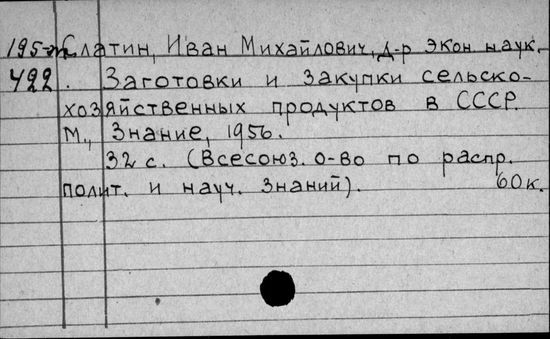 Слатин, Иван Михайлович, д-р экон. наук.
422. Заготовки и закупки сельско-
хозяйственных продуктов в СССР.
М., Знание, 1956.
32 с. (Всесоюз. о-во по распр.
полит. и науч. знаний). 60к.